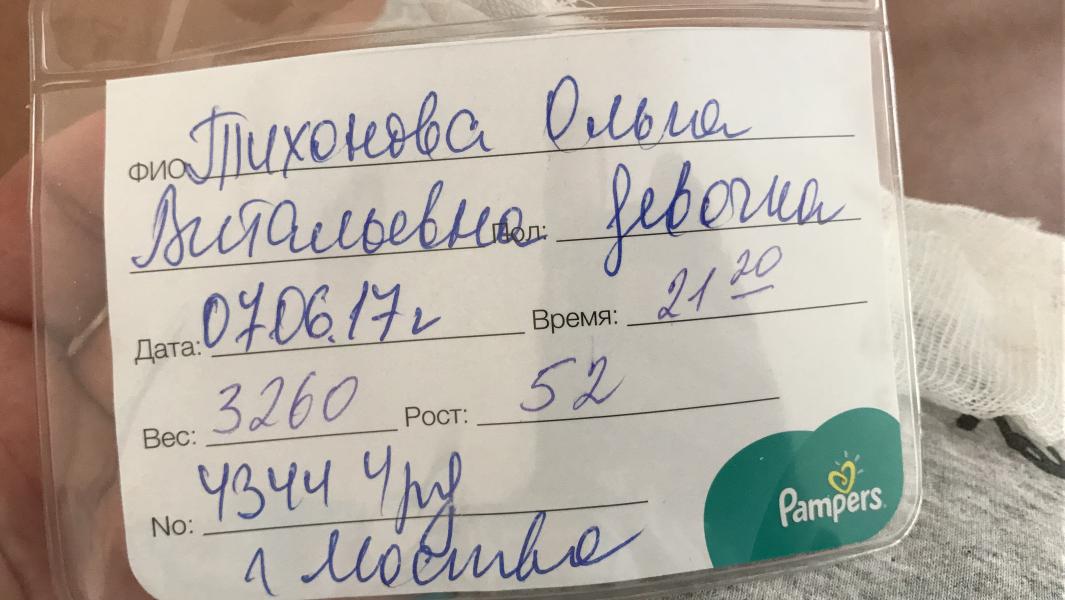 ФИО Тихонова Ольга
Витальевна Пол: девочка
Дата: 07.06.17г Время: 21 20
Вес: 3260 Рост: 52
No: 4344 4рд
г Москва
Pampers